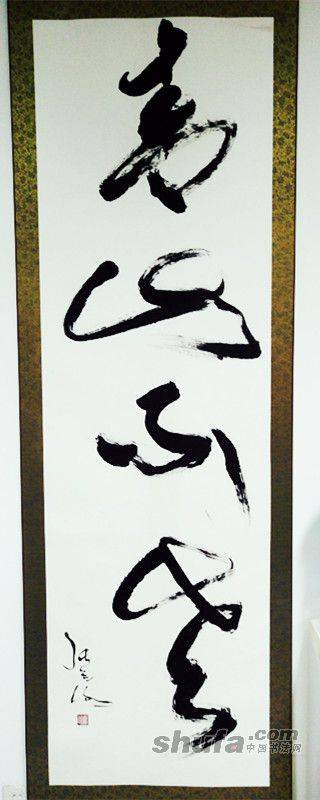 青山不老
shufa.com
中国书法网